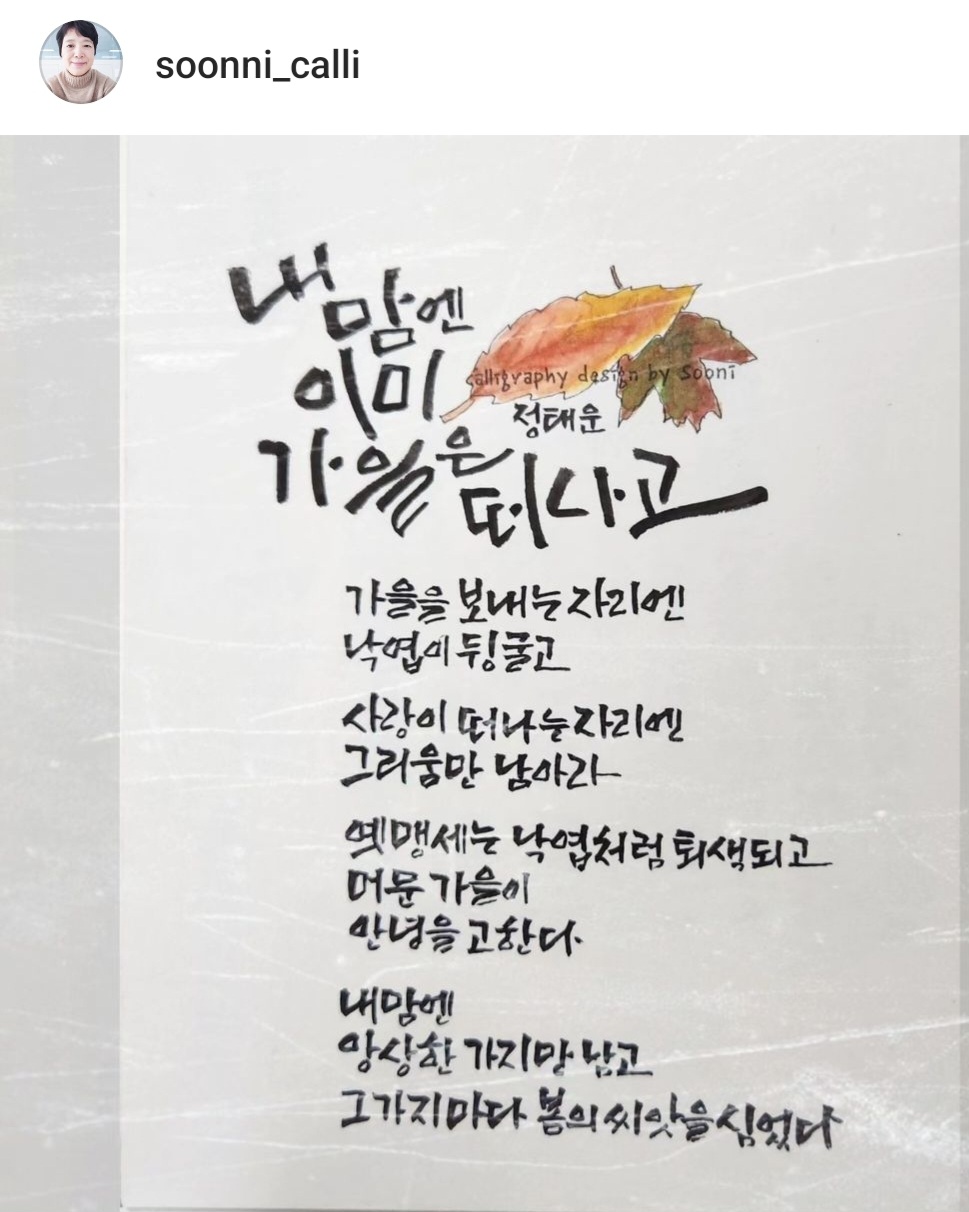 soonni_calli
내맘엔
이미
가을은 떠나고
calligraphy design by Sooni
정태운
가을을 보내는 자리엔
낙엽이 뒹굴고
사랑이 떠나는 자리엔
그리움만 남아라
옛맹세는 낙엽처럼 퇴색되고
머문 가을이
안녕을 고한다.
내맘엔
앙상한 가지만 남고
그가지마다 봄의 씨앗을 심었다